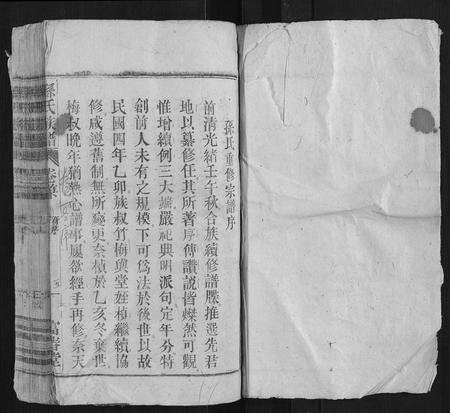 孫氏重修家譜序
前清光緒壬午秋合族續修譜牒推選先君
地以纂修任其所著序傳讚說皆燦然可觀
惟增續例三大嚴祀典明派句定年分特
創前人未有之規模下可為法於後世以故
民國四年乙卯族叔竹梅與堂姪植繼續協
修咸遵舊制無所變更奈植於乙亥冬棄世
梅叔晚年猶熱心譜事屢欲經手再修奈天
孫氏族譜
富春堂